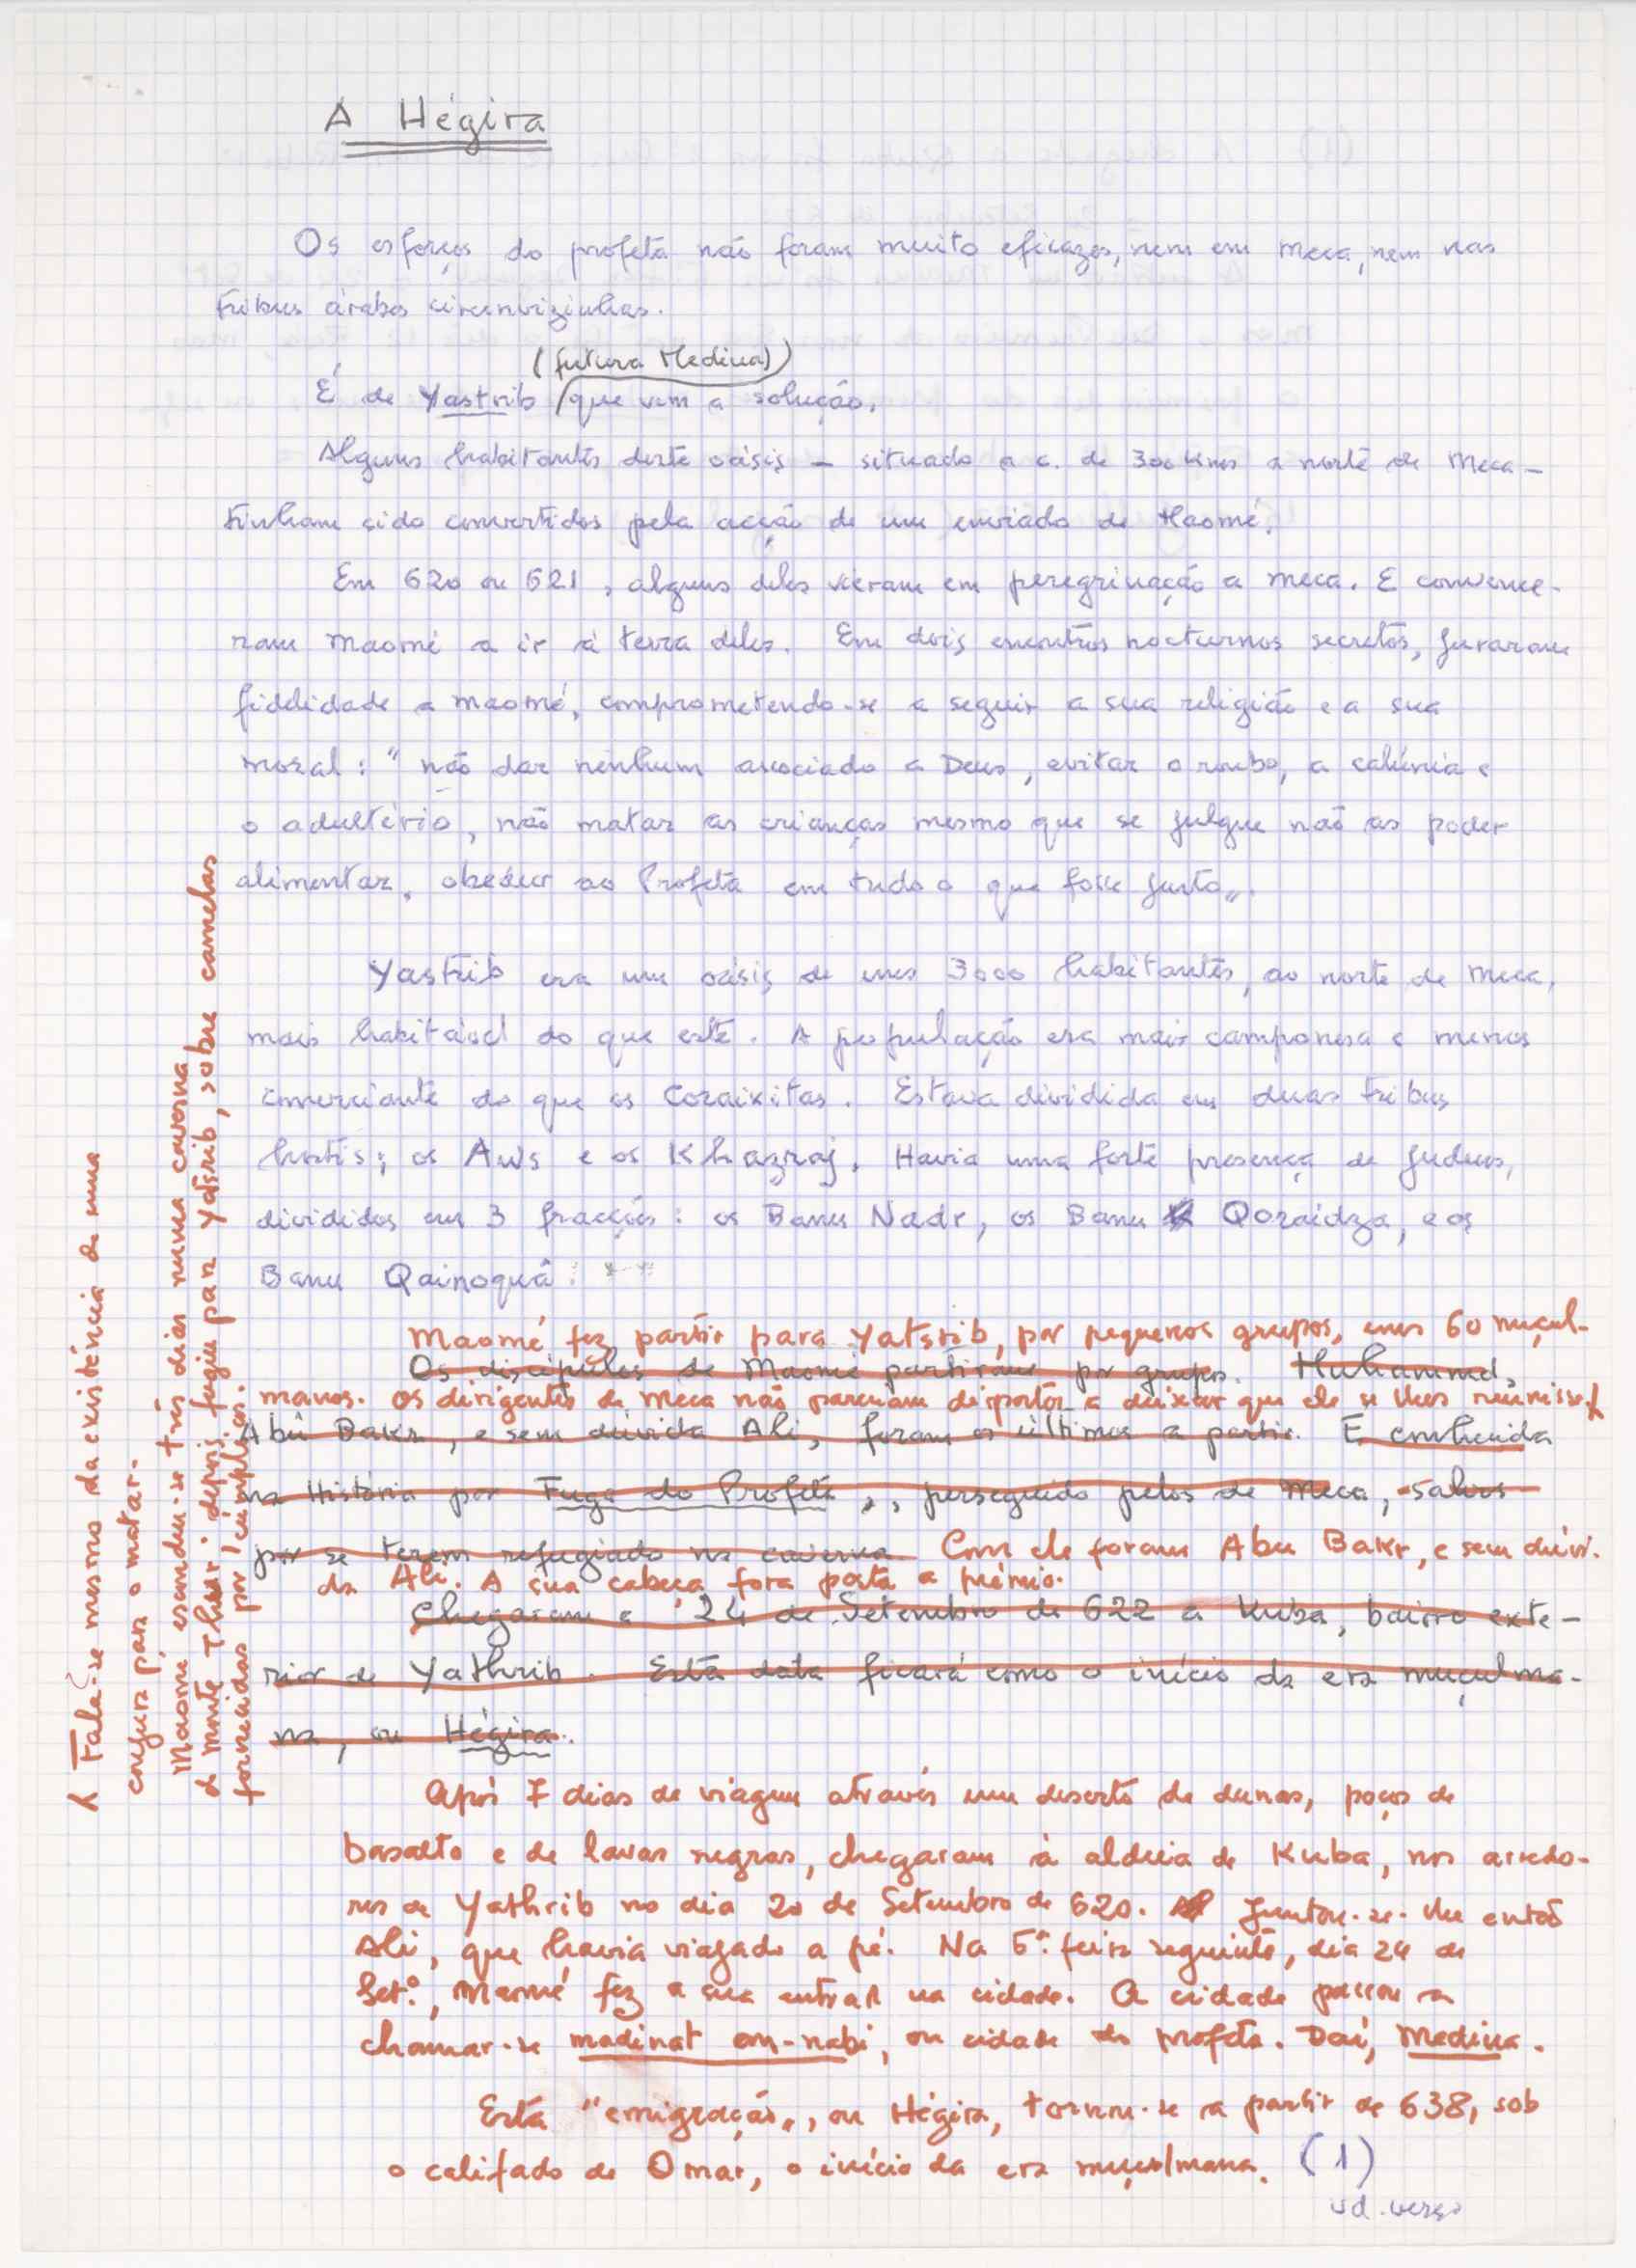 A Hégira
Os esforços do profeta não foram muito eficazes, nem em Meca, nem nas
tribus árabes circunvizinhas.
(futura Medina)
É de Yastrib que vem a solução.
Alguns habitantes deste oásis – situado a c. de 300 Kms a norte de Meca –
tinham sido convertidos pela acção de um enviado de Maomé.
Em 620 ou 621, alguns deles vieram em peregrinação a Meca. E convence-
ram Maomé a ir à terra deles. Em dois encontros nocturnos secretos, juraram
fidelidade a Maomé, comprometendo-se a seguir a sua religião e a sua
moral: "não dar nenhum associado a Deus, evitar o roubo, a calúnia e
o adultério, não matar as crianças mesmo que se julgue não as poder
alimentar, obedecer ao Profeta em tudo o que fosse justo".
Yastrib era um oásis de uns 3000 habitantes, ao norte de Meca,
mais habitável do que este. A população era mais camponesa e menos
comerciante do que os Coraixitas. Estava dividida em duas tribus
hostis; os Aws e os Khazraj. Havia uma forte presença de judeus,
divididos em 3 fracções: os Banu Nadr, os Banu Qoraidza, e os
Banu Qainoquâ.
Maomé fez partir para Yatsrib, por pequenos grupos, uns 60 muçul-
Os discípulos de Maomé partiram por grupos. Muhammed,
manos. Os dirigentes de Meca não pareciam dispostos a deixar que ele se lhes reunisse.
Abû Bakr, e sem dúvida Ali, foram os últimos a partir. É conhecida
na História por Fuga do Profeta, perseguido pelos de Meca, salvos
por se terem refugiado na caverna Com ele foram Abu Bakr, e sem dúvi-
da Ali. A sua cabeça fora posta a prémio.
Chegaram a 24 de Setembro de 622 a Kuba, bairro exte-
rior de Yathrib. Esta data ficará como o início da era muçulma-
na, ou Hégira.
Após 7 dias de viagem através um deserto de dunas, poços de
basalto e de lavas negras, chegaram à aldeia de Kuba, nos arredo-
res de Yathrib no dia 20 de Setembro de 620. Juntou-se-lhe então
Ali, que havia viajado a pé. Na 5ª feira seguinte, dia 24 de
Setº, Maomé fez a sua entrada na cidade. A cidade passou a
chamar-se madinat an-nabi, ou cidade do profeta. Daí, Medina.
Esta "emigração", ou Hégira, tornou-se a partir de 638, sob
o califado de Omar, o início da era muçulmana. (1)
vd. verso
Fala-se mesmo da existência de uma
conjura para o matar.
Maomé escondeu-se três dias numa caverna
do monte Thur: depois, fugiu para Yatsrib, sobre camelas
fornecidas por cúmplices.